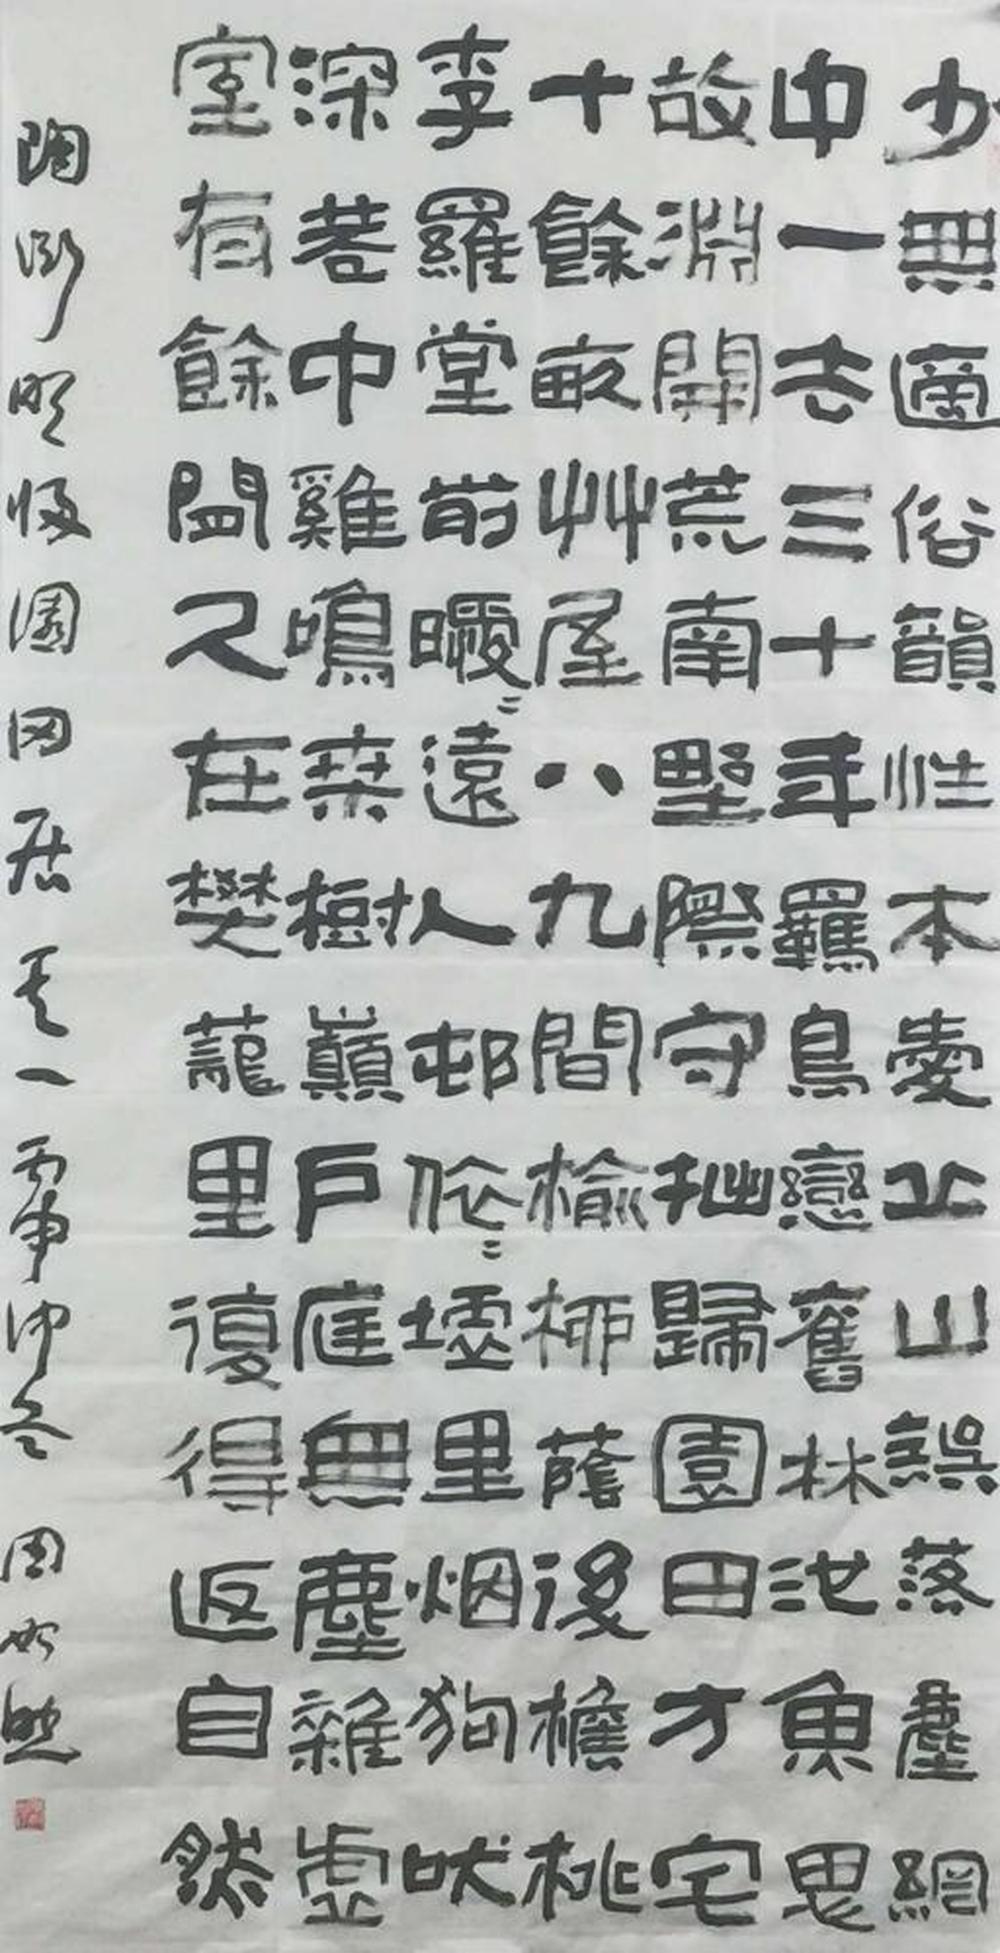 少無適俗韻性本愛丘山誤落塵網
中一去三十年羈鳥戀舊林池魚思
故淵開荒南野際守拙歸園田方宅
十餘畝艸屋八九間榆柳蔭後檐桃
李羅堂前曖〻遠人邨依〻墟里烟狗吠
深巷中雞鳴桑樹巔戶庭無塵雜虛
室有餘閒久在樊籠里復得返自然
陶淵明歸園田居其一丙申仲冬周